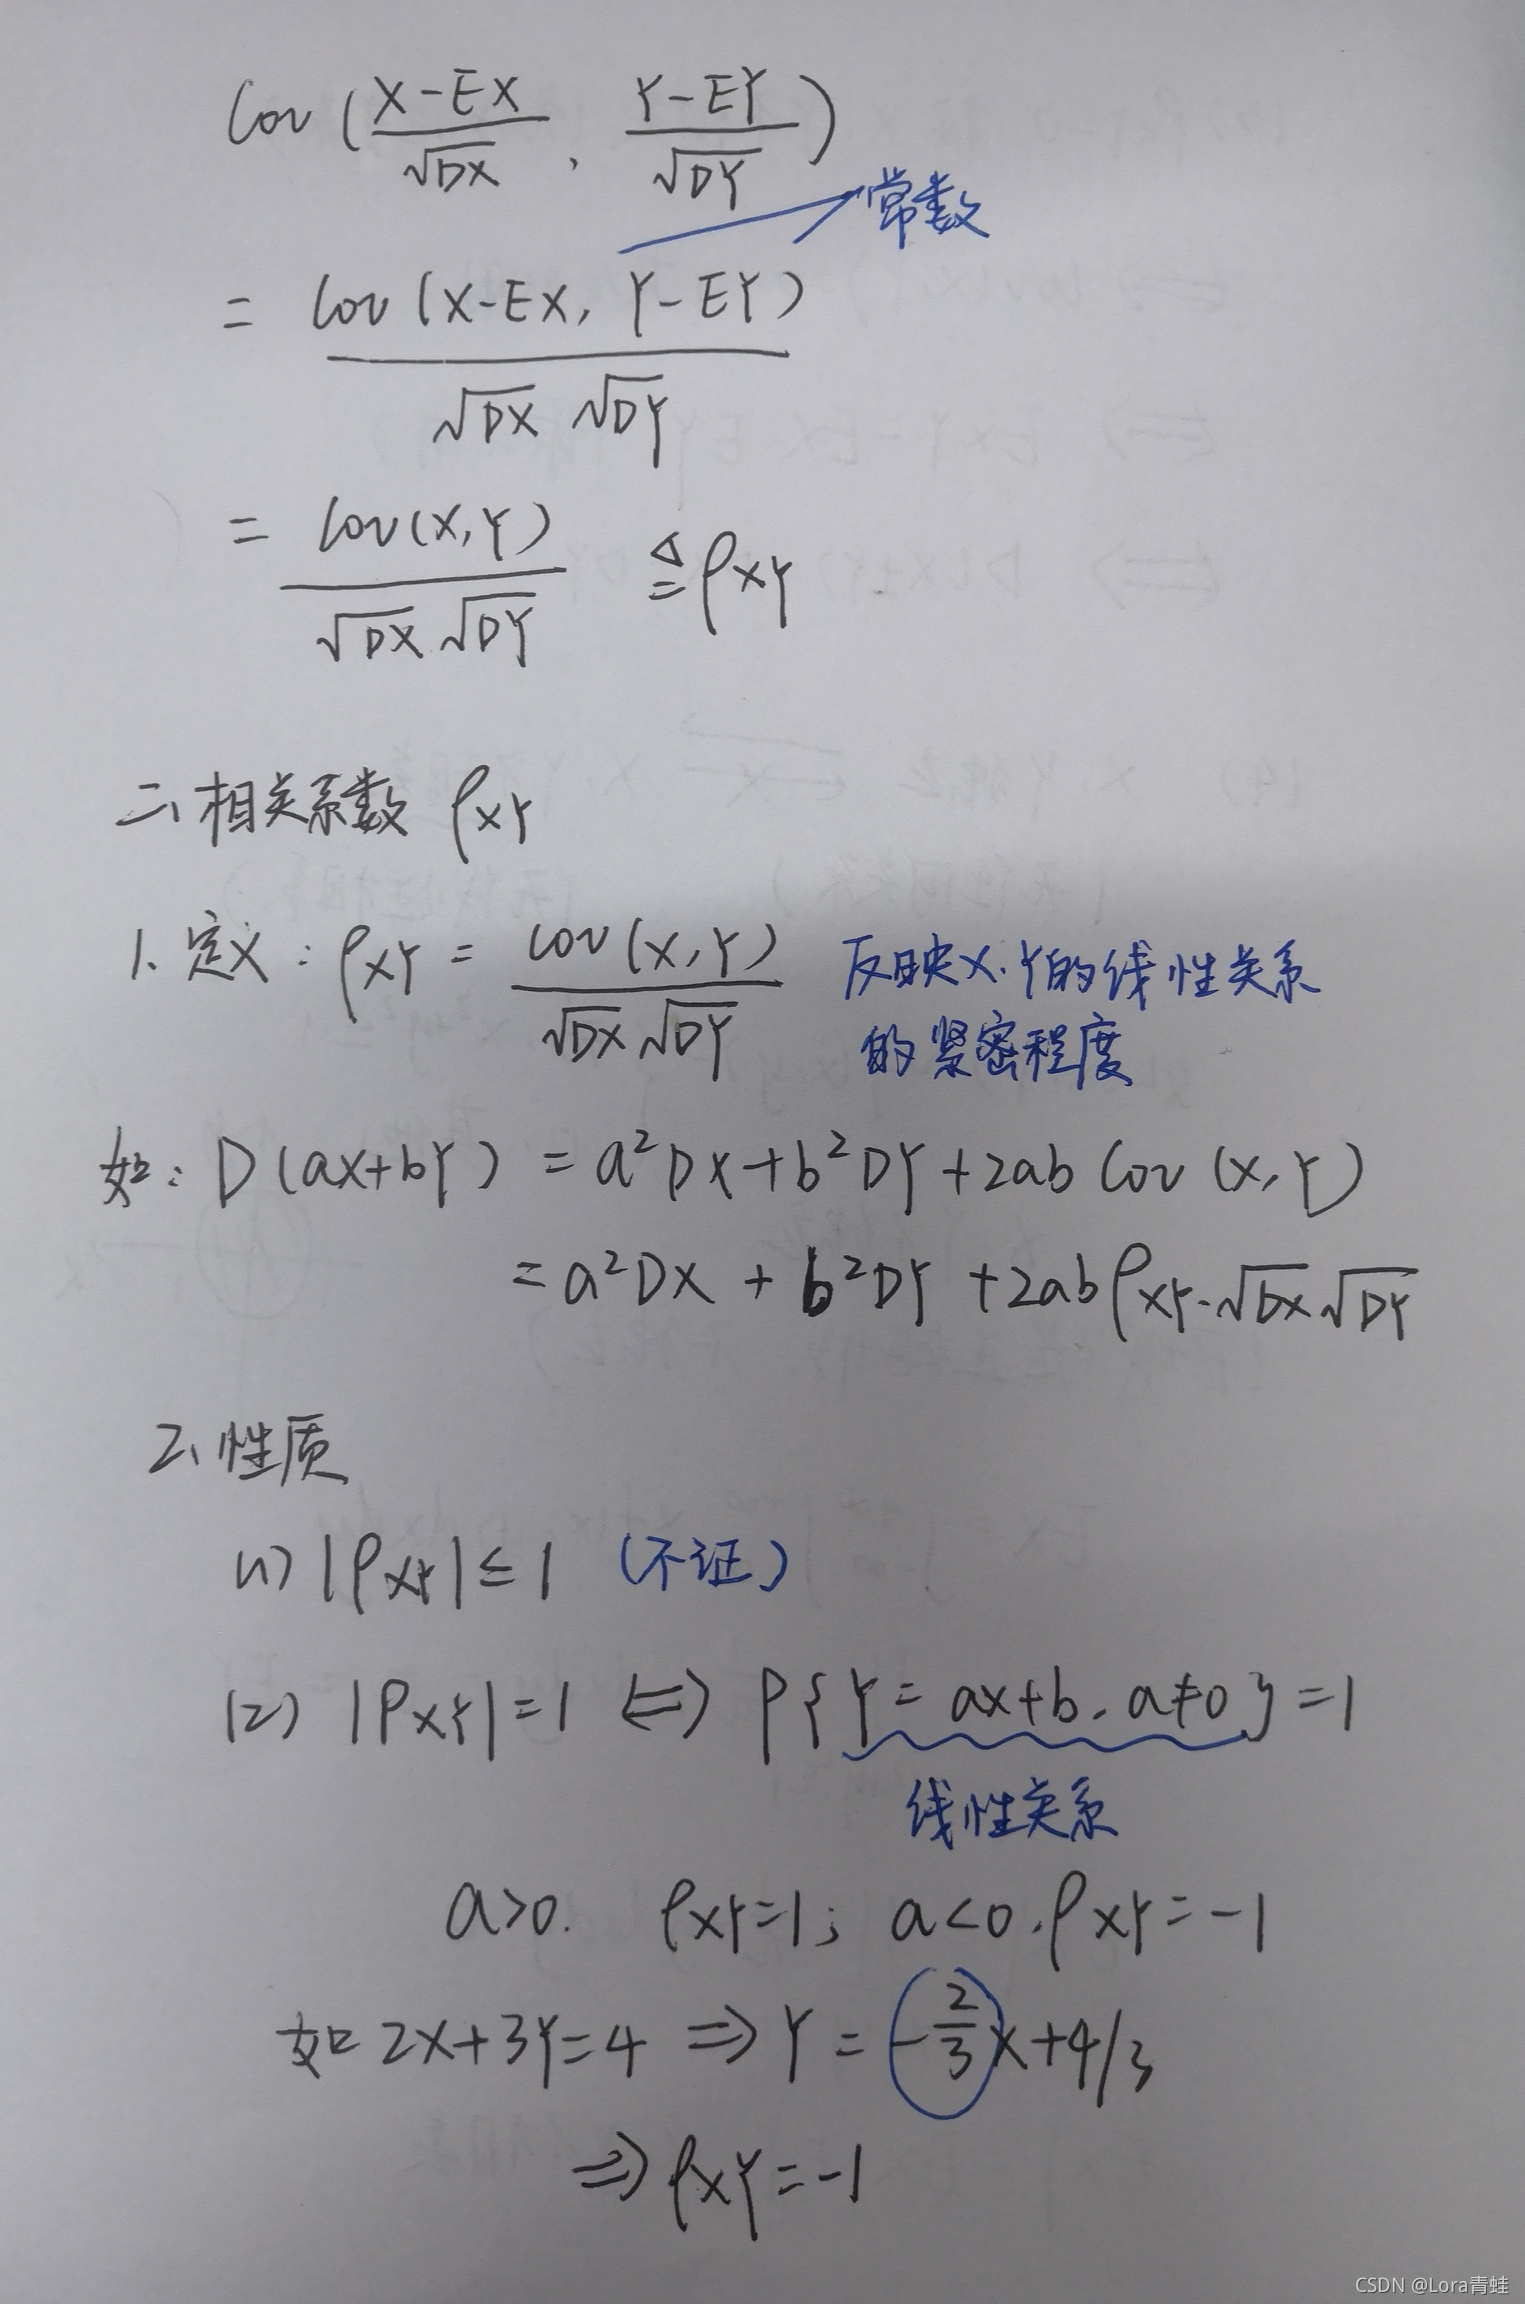 Cov(\frac{X-EX}{\sqrt{DX}}, \frac{Y-EY}{\sqrt{DY}})
常数
= \frac{Cov(X-EX, Y-EY)}{\sqrt{DX}\sqrt{DY}}
= \frac{Cov(X,Y)}{\sqrt{DX}\sqrt{DY}} ≜ ρ_{XY}
二、相关系数 ρ_{XY}
1. 定义: ρ_{XY} = \frac{Cov(X,Y)}{\sqrt{DX}\sqrt{DY}} 反映X,Y的线性关系
的紧密程度
如: D(aX+bY) = a²DX+b²DY+2ab Cov(X,Y)
= a²DX + b²DY + 2abρ_{XY}·\sqrt{DX}\sqrt{DY}
2、性质
(1) |ρ_{XY}| ≤ 1 (不证)
(2) |ρ_{XY}|=1 ⟺ P{Y=aX+b, a≠0}=1
线性关系
a>0. ρ_{XY}=1; a<0, ρ_{XY}=-1
如 2X+3Y=4 ⇒ Y = -\frac{2}{3}X+4/3
⇒ ρ_{XY}=-1
CSDN @Lora青蛙